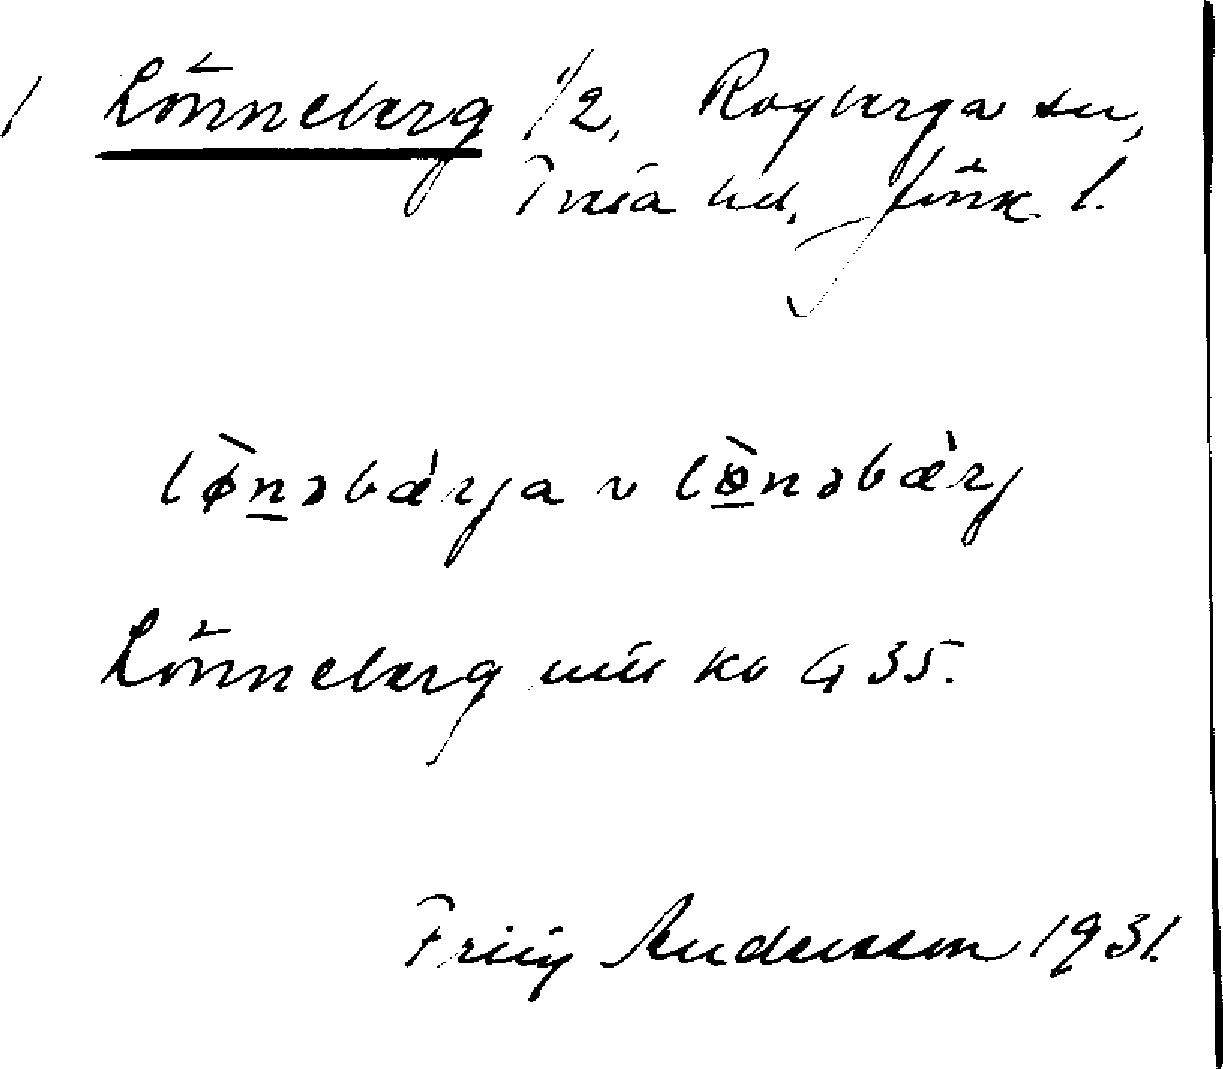 1 Lönneberg 1/2, Rogberga sn,
Tveta hd, Jönk. l.
lø̀nəbæ̀rja v lö̀nəbæ̀rj
Lönneberg mtl kb G 35.
Friig Andersson 1931.